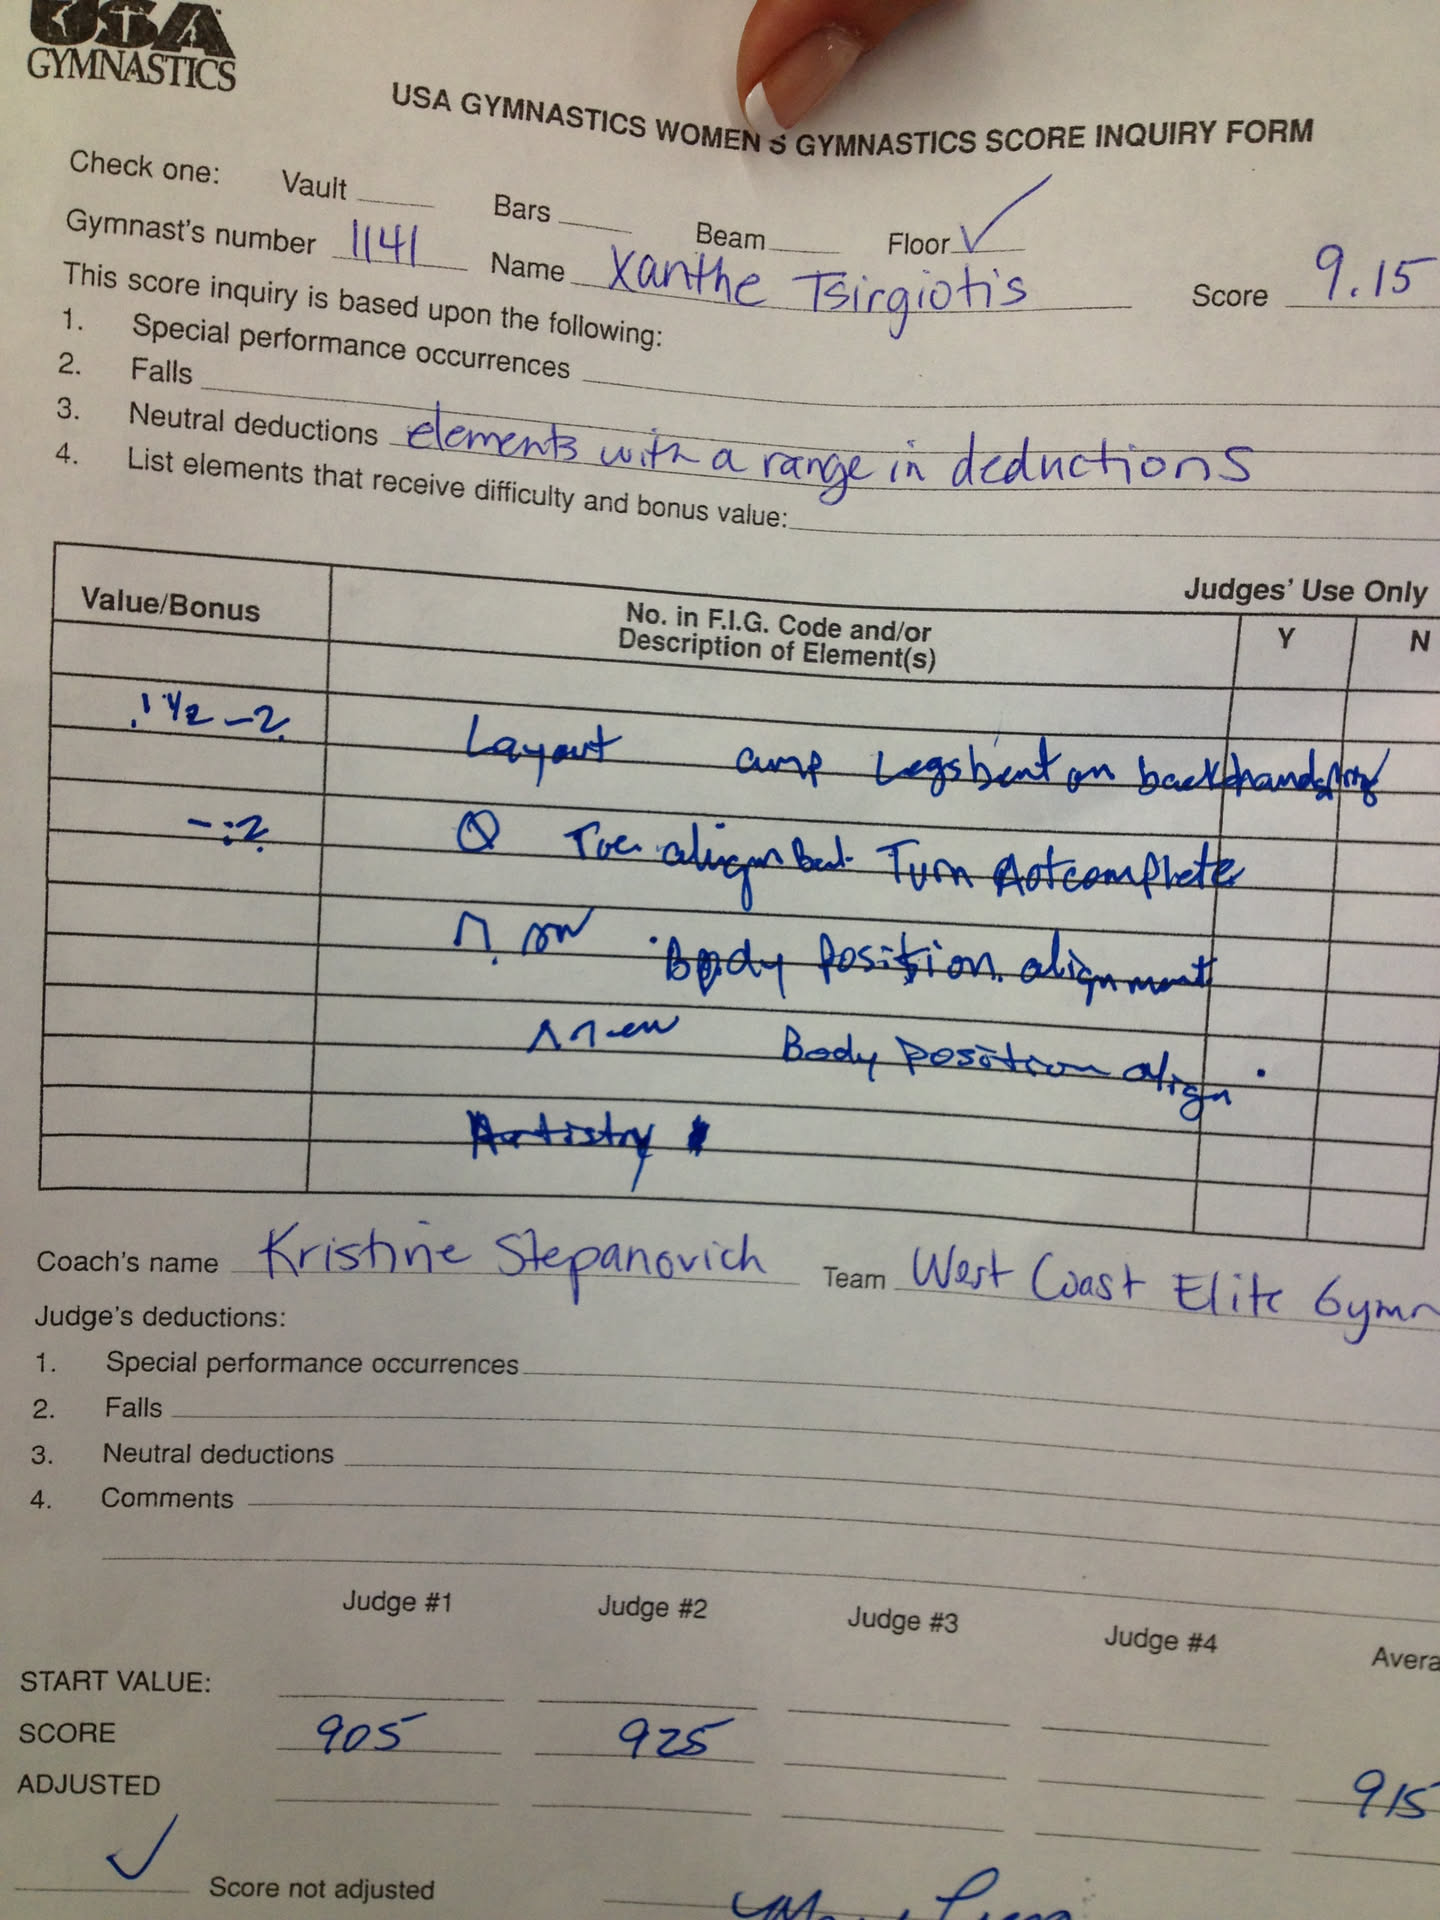 USA
GYMNASTICS
USA GYMNASTICS WOMEN'S GYMNASTICS SCORE INQUIRY FORM
Check one: Vault Bars Beam Floor ✓
Gymnast's number 1141 Name Xanthe Tsirgiotis Score 9.15
This score inquiry is based upon the following:
1. Special performance occurrences
2. Falls
3. Neutral deductions elements with a range in deductions
4. List elements that receive difficulty and bonus value:
Judges' Use Only
Value/Bonus No. in F.I.G. Code and/or Y N
Description of Element(s)
.1 1/2 - 2. Layout Legs bent on backhandspring
- .2 Toe align Turn Not complete
Body Position alignment
Body position align
Artistry
Coach's name Kristine Stepanovich Team West Coast Elite Gymn
Judge's deductions:
1. Special performance occurrences
2. Falls
3. Neutral deductions
4. Comments
Judge #1 Judge #2 Judge #3 Judge #4 Avera
START VALUE:
SCORE 905 925
ADJUSTED 915
✓ Score not adjusted